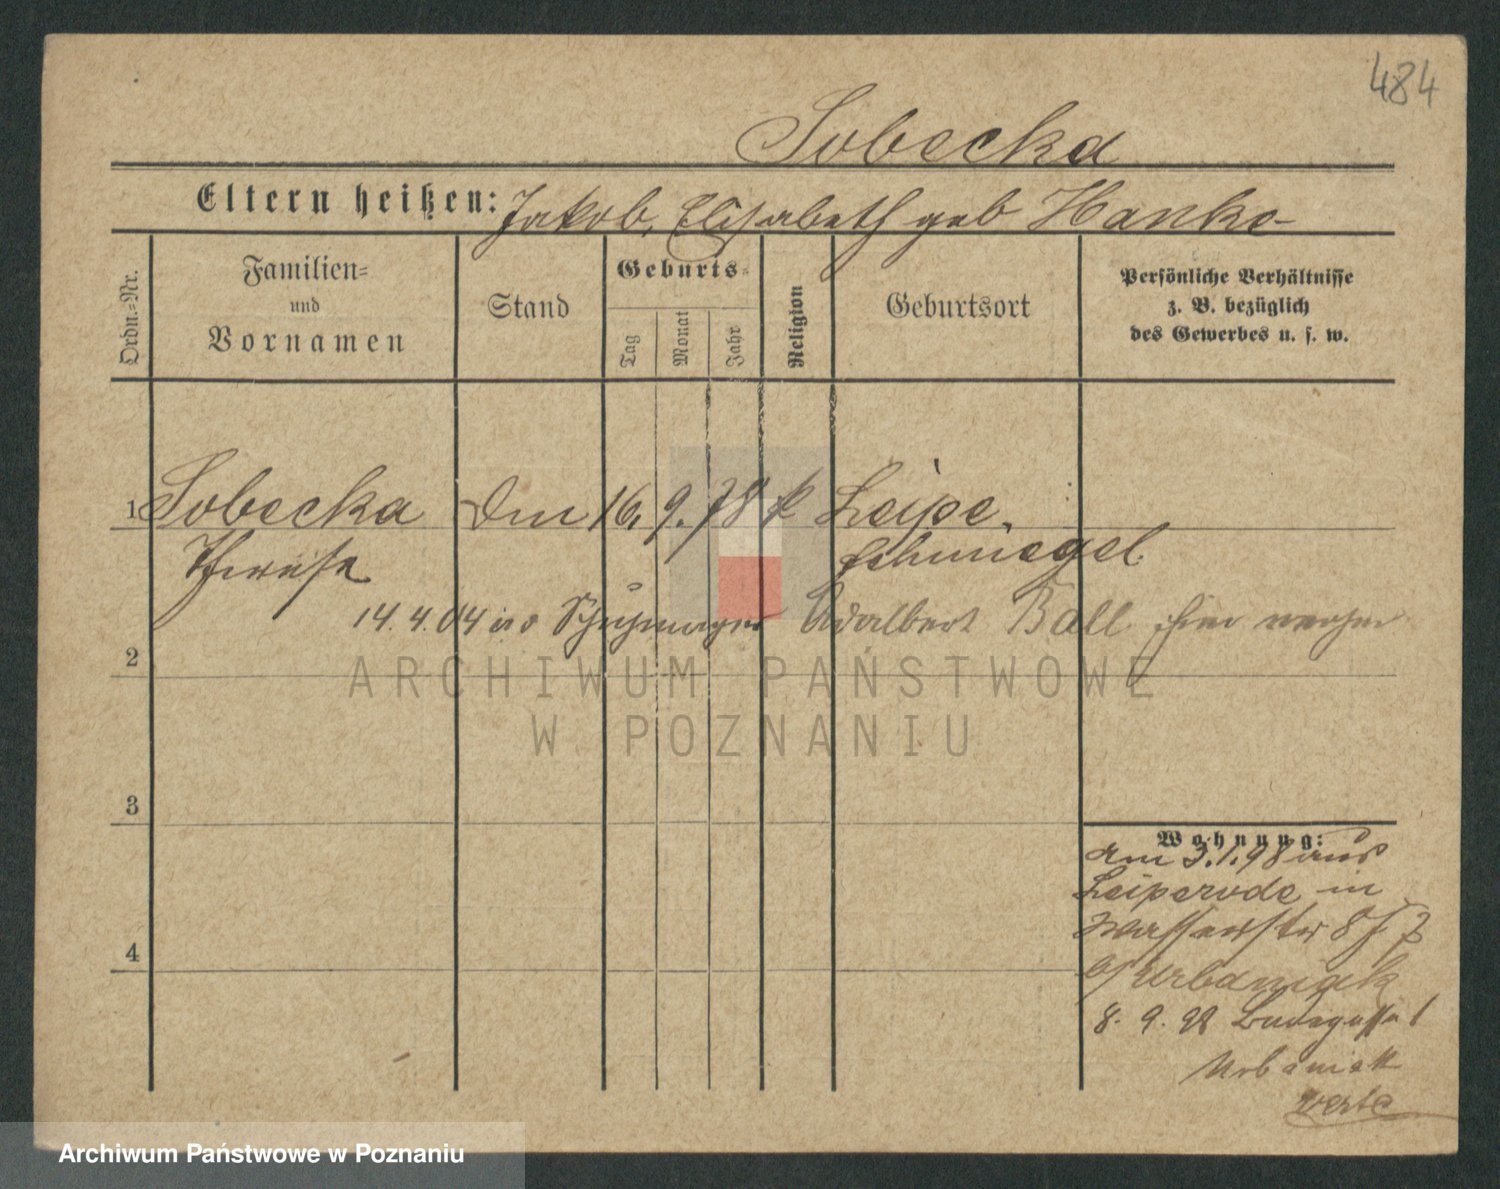 484
Sobecka
Eltern heißen: Jakob, Elisabeth geb Hanke
Ordn.=Nr.
Familien=
und
Vornamen
Stand
Geburts=
Tag
Monat
Jahr
Religion
Geburtsort
Persönliche Verhältnisse
z. B. bezüglich
des Gewerbes u. s. w.
1 Sobecka 16. 9. 78 k Leipe,
Therese Schmiegel
14.4.04 Adalbert Ball hier
2
ARCHIWUM PAŃSTWOWE
W POZNANIU
3
Wohnung:
am 3.1.98 aus
Leiperode in
Wasserstr 8
b/Urbaniak
8. 9. 98
Urbaniak
verte
4
Archiwum Państwowe w Poznaniu